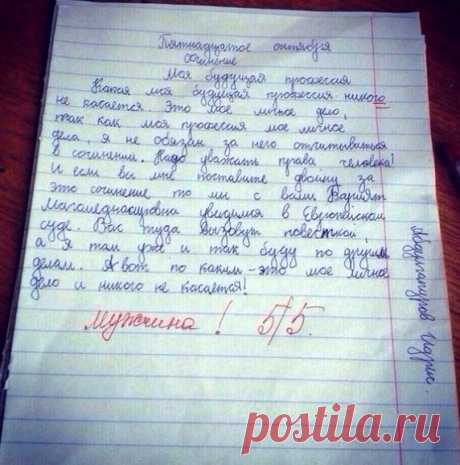 Пятнадцатое октября
Сочинение
Моя будущая профессия
Какая моя будущая профессия никого
не касается. Это мое личное дело,
так как моя профессия мое личное
дела, я не обязан за него отчитываться
в сочинении. Надо уважать права человека!
И если вы мне поставите двойку за
это сочинение то мы с вами Барият
Магомеднасировна увидимся в Европейском
суде. Вас туда вызовут повесткой,
а я там уже и так буду по другим
делам. А вот по каким - это мое личное
дело и никого не касается!
Мужчина! 5/5.
Абдулгапуров Идрис.
postila.ru